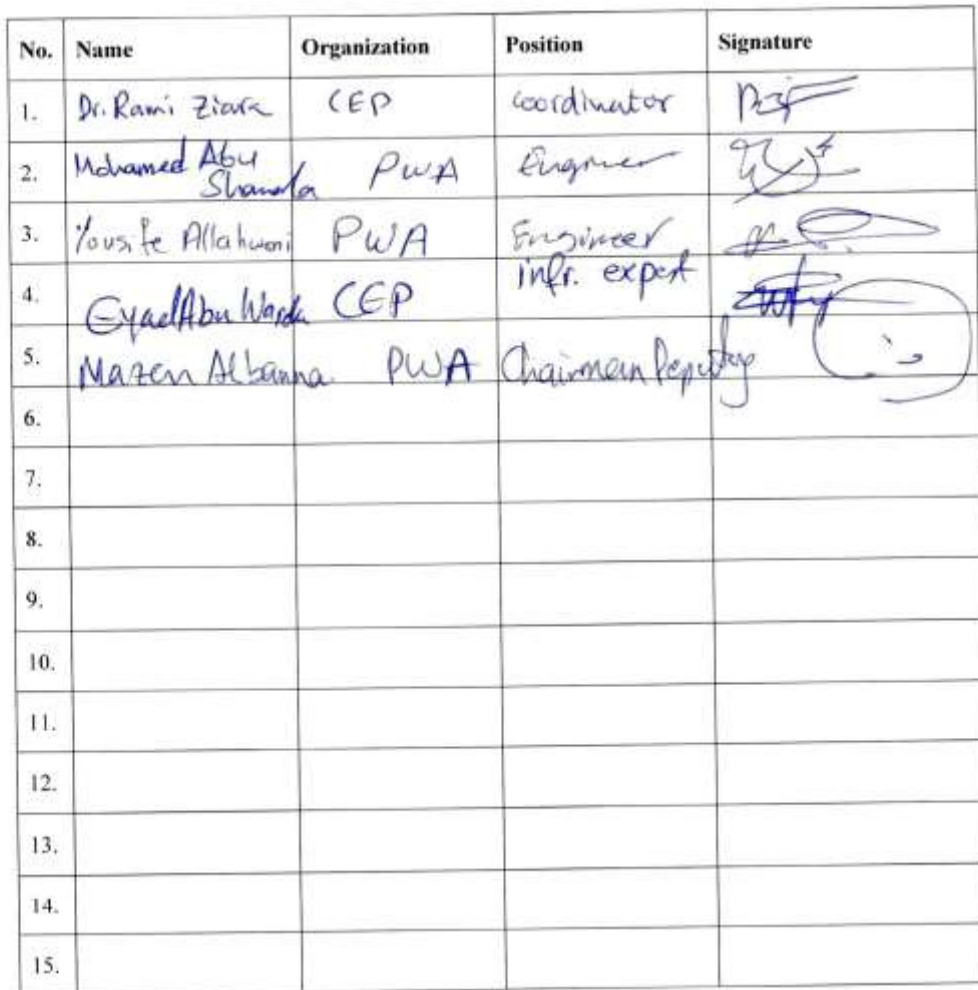 No. Name Organization Position Signature
1. Dr. Rami Ziara CEP Coordinator
2. Mohamed Abu PWA Engineer
3. Yousife PWA Engineer
4. Eyad Abu Warda CEP infr. expert
5. Mazen Albanna PWA Chairman Deputy
6.
7.
8.
9.
10.
11.
12.
13.
14.
15.